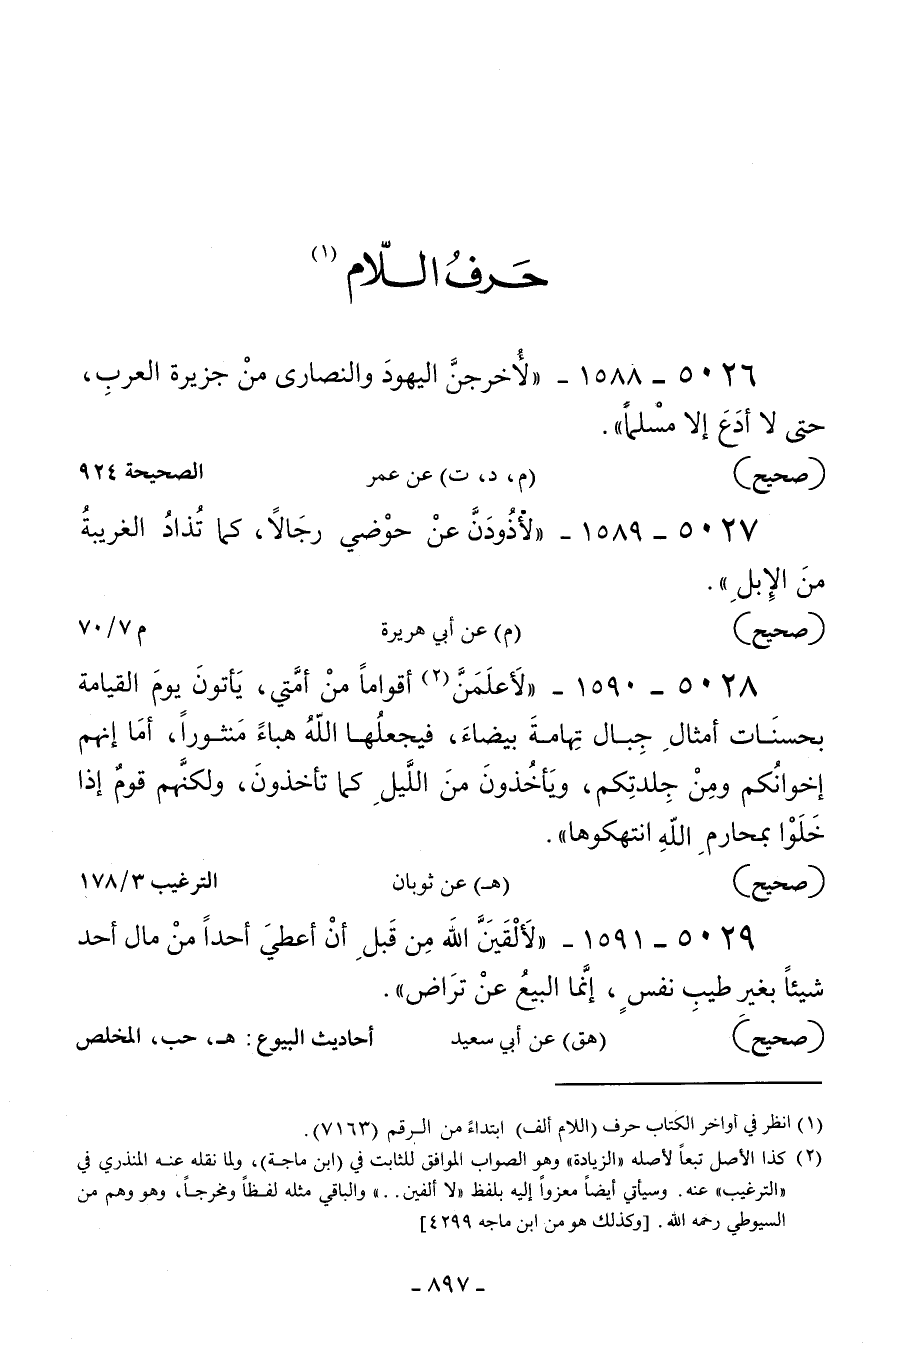 حَـرفُ الـلّام (١)
٥٠٢٦ ـ ١٥٨٨ ـ «لأُخرجنَّ اليهودَ والنصارى منْ جزيرة العربِ،
حتى لا أدَعَ إلا مسْلماً».
(صحيح) (م، د، ت) عن عمر الصحيحة ٩٢٤
٥٠٢٧ ـ ١٥٨٩ ـ «لأَذُودَنَّ عنْ حوْضي رجَالاً، كما تُذادُ الغريبةُ
منَ الإِبلِ».
(صحيح) (م) عن أبي هريرة م ٧٠/٧
٥٠٢٨ ـ ١٥٩٠ ـ «لَأعلَمَنَّ(٢) أقواماً منْ أمَّتي، يَأتونَ يومَ القيامة
بحسنَـات أمثالِ جِبـال تِهامـةَ بيضاءَ، فيجعلُهـا اللّهُ هباءً مَنثـوراً، أمَا إنهم
إخوانُكم ومِنْ جِلدتِكم، ويَأخُذونَ منَ اللَّيلِ كما تأخذونَ، ولكنَّهم قومٌ إذا
خَلَوْا بمحارمِ اللّهِ انتهكوها».
(صحيح) (هـ) عن ثوبان الترغيب ١٧٨/٣
٥٠٢٩ ـ ١٥٩١ ـ «لَألْقَينَّ الله مِن قَبلِ أنْ أعطيَ أحداً منْ مال أحد
شيئاً بغيرِ طيبِ نفسٍ، إنَّما البيعُ عنْ ترَاض».
(صحيح) (هق) عن أبي سعيد أحاديث البيوع: هـ، حب، المخلص
(١) انظر في أواخر الكتاب حرف (اللام ألف) ابتداءً من الـرقم (٧١٦٣).
(٢) كذا الأصل تبعاً لأصله «الزيادة» وهو الصواب الموافق للثابت في (ابن ماجـة)، ولما نقله عنـه المنذري في
«الترغيب» عنه. وسيأتي أيضاً معزواً إليه بلفظ «لا ألفين..» والباقي مثله لفـظاً ومخرجـاً، وهو وهم من
السيوطي رحمه الله. [وكذلك هو من ابن ماجه ٤٢٩٩]
ـ ٨٩٧ ـ